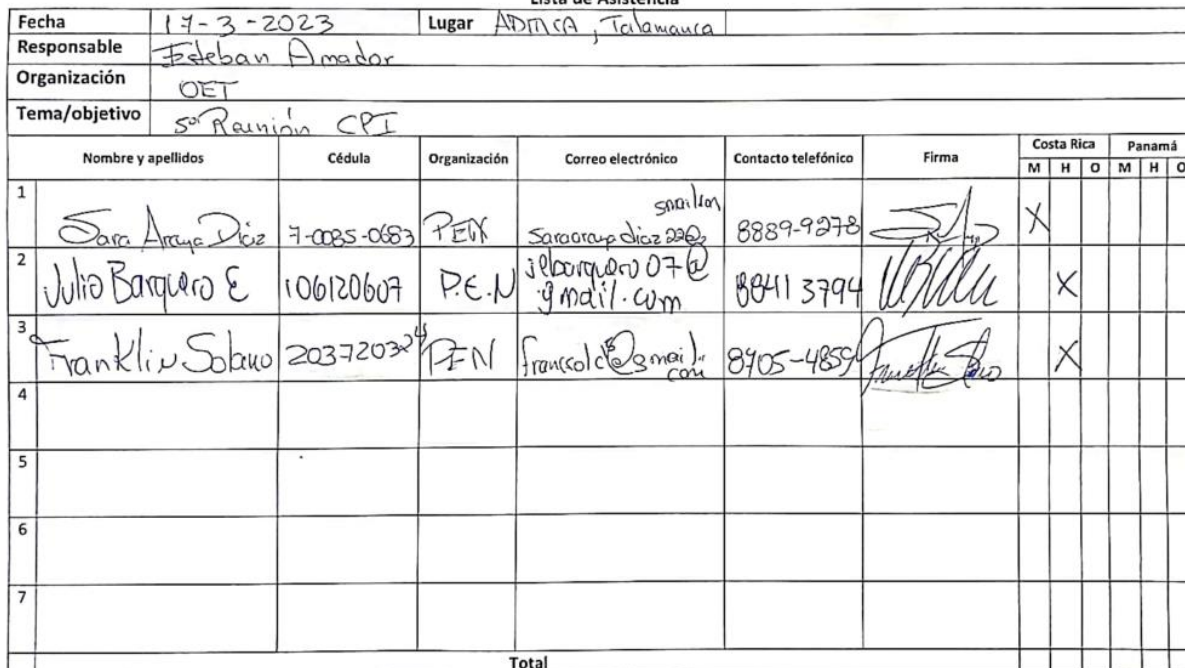 Lista de Asistencia
Fecha 17-3-2023 Lugar ADITICA, Talamanca
Responsable Esteban Amador
Organización OET
Tema/objetivo 5ª Reunión CPI
Nombre y apellidos Cédula Organización Correo electrónico Contacto telefónico Firma Costa Rica Panamá
M H O M H O
1 Sara Araya Díaz 7-0085-0683 PEN saraarayadiaz22@ 8889-9278 X
2 Julio Barquero E 106120607 P.E.N jebarquero07@
gmail.com 88413794 X
3 Franklin Solano 203720324 PEN @gmail.
com 8905-4859 X
4
5
6
7
Total